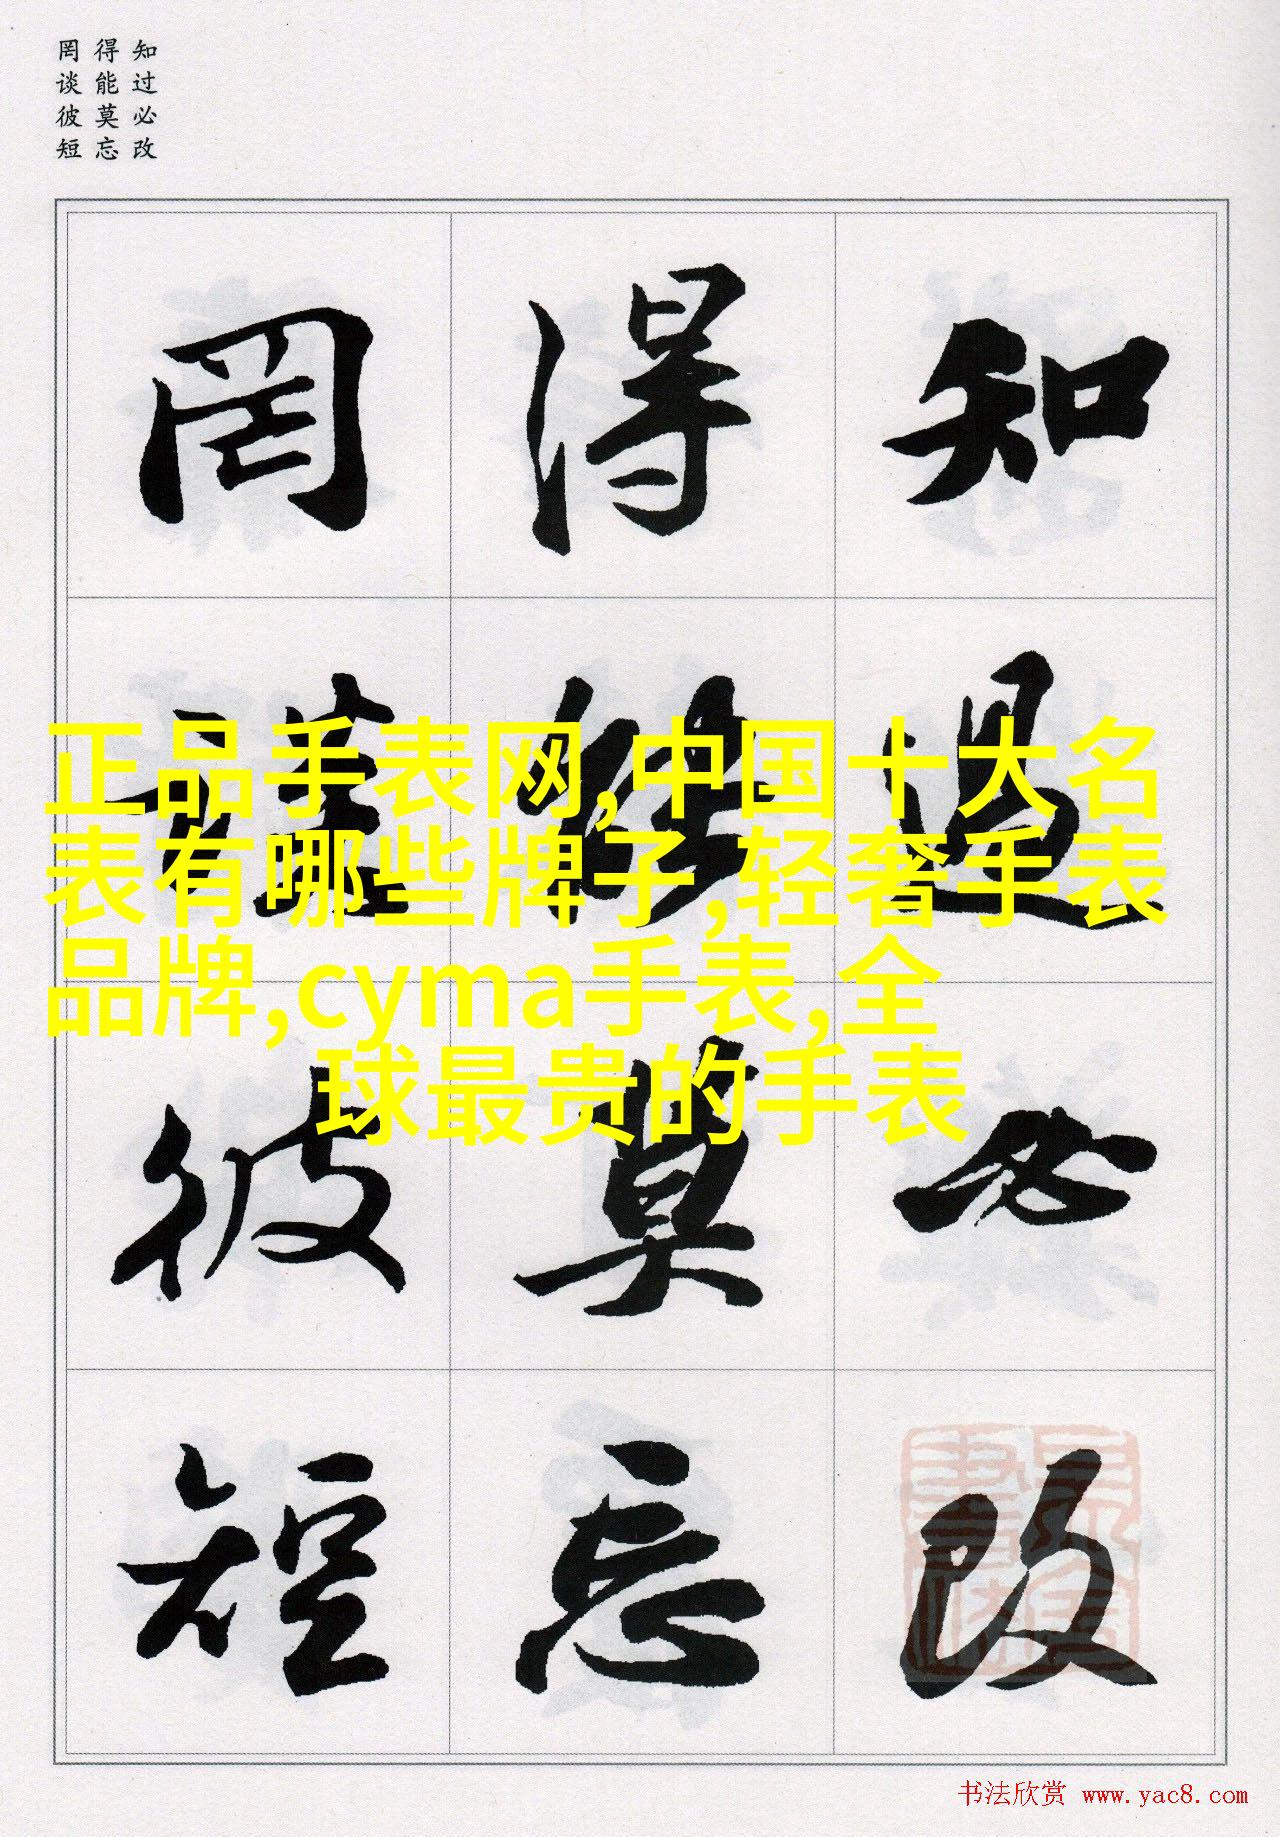 知过必改
得能莫忘
罔谈彼短
知过必改
得能莫忘
罔谈彼短
正品手表网,中国十大名
表有哪些牌子,轻奢手表
品牌,cyma手表,全
球最贵的手表
书法欣赏 www.yac8.com